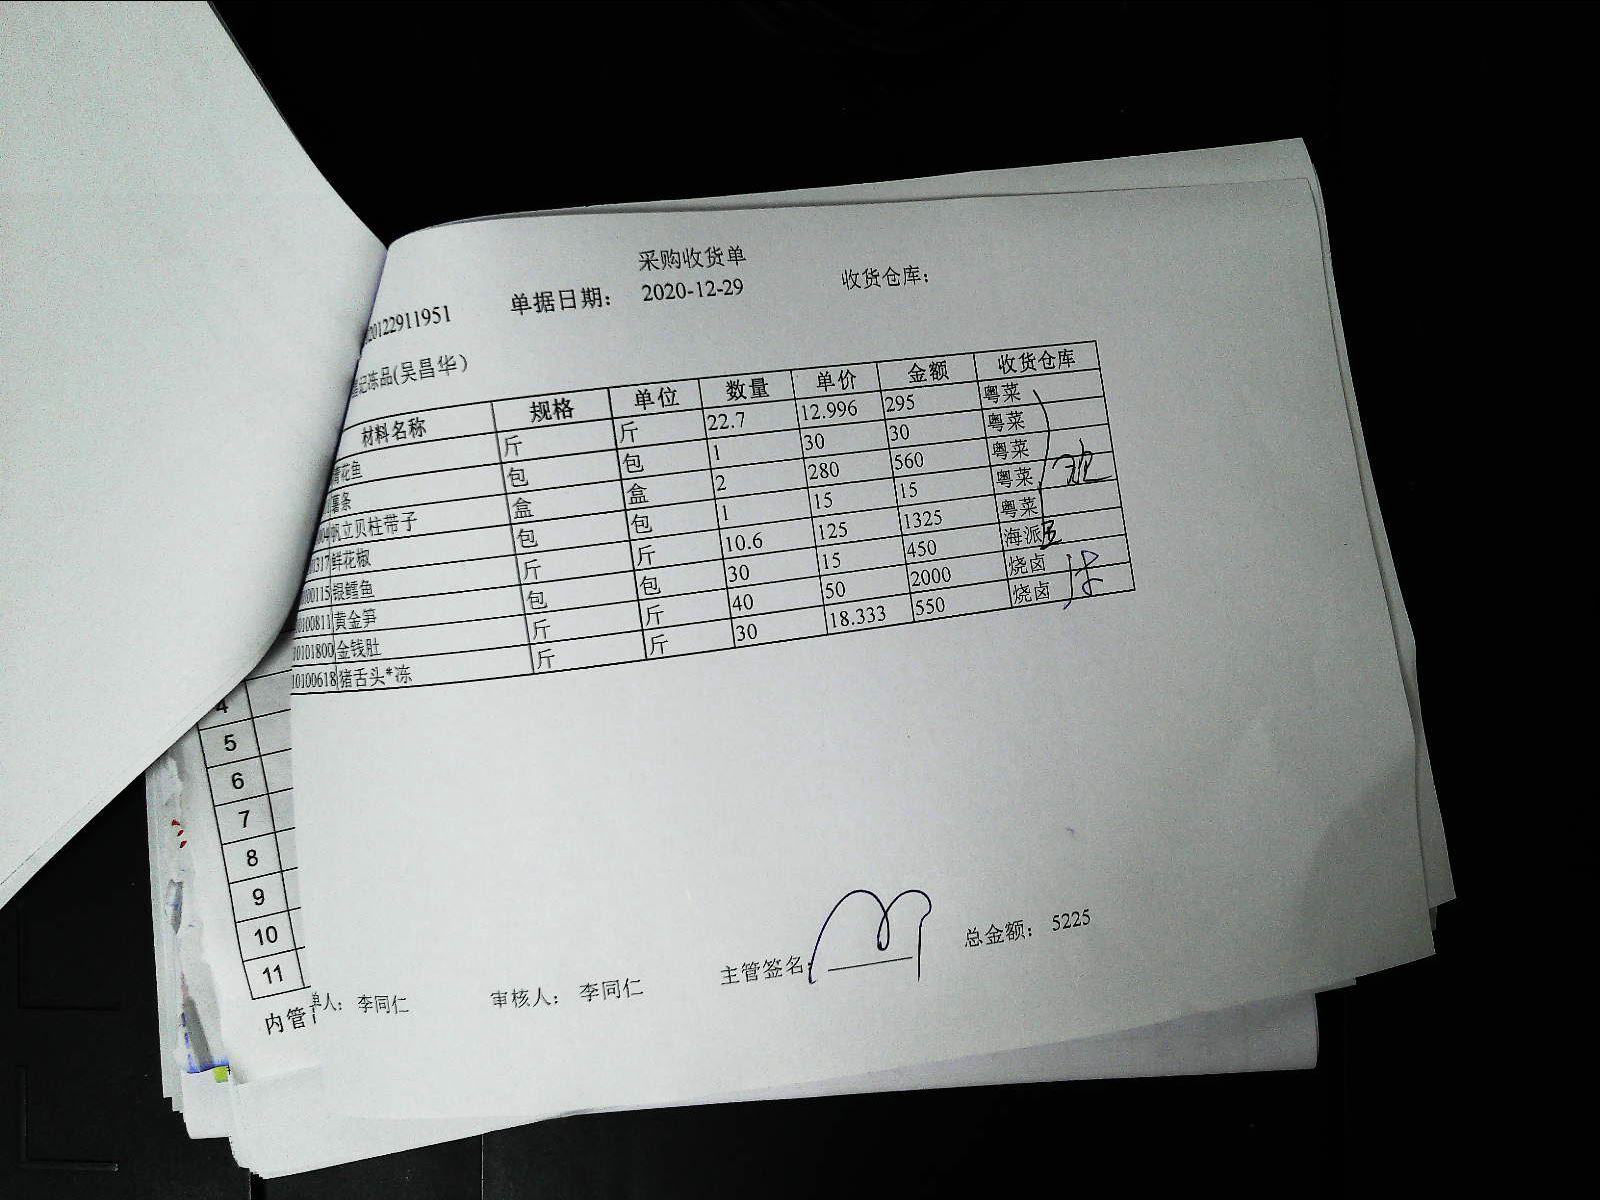 采购收货单
20122911951 单据日期: 2020-12-29 收货仓库:
记冻品(吴昌华)
材料名称 规格 单位 数量 单价 金额 收货仓库
青花鱼 斤 斤 22.7 12.996 295 粤菜
薯条 包 包 1 30 30 粤菜
帆立贝柱带子 盒 盒 2 280 560 粤菜
317 鲜花椒 包 包 1 15 15 粤菜
00115 银鳕鱼 斤 斤 10.6 125 1325 粤菜
0100811 黄金笋 包 包 30 15 450 海派
10101800 金钱肚 斤 斤 40 50 2000 烧卤
10100618 猪舌头*冻 斤 斤 30 18.333 550 烧卤
4
5
6
7
8
9
10
11
主管签名: 总金额: 5225
单人: 李同仁 审核人: 李同仁
内管